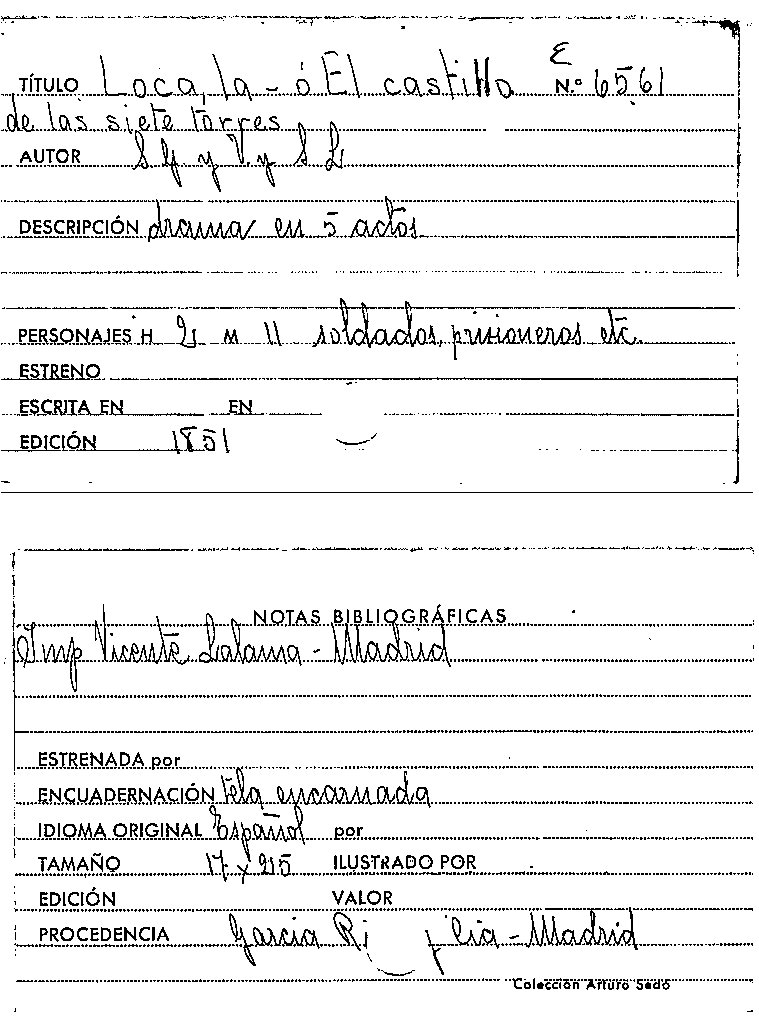 E
TÍTULO Loca, la - ó El castillo N.º 6561
de las siete torres
AUTOR S G y V. y S L
DESCRIPCIÓN drama en 5 actos
PERSONAJES H 21 M 11 soldados, prisioneros etc.
ESTRENO
ESCRITA EN EN
EDICIÓN 1851
NOTAS BIBLIOGRÁFICAS
Imp Vicente Lalama - Madrid
ESTRENADA por
ENCUADERNACIÓN tela encarnada
IDIOMA ORIGINAL Español por
TAMAÑO 17 x 215 ILUSTRADO POR
EDICIÓN VALOR
PROCEDENCIA Garcia Ri - Madrid
Colección Arturo Sedó